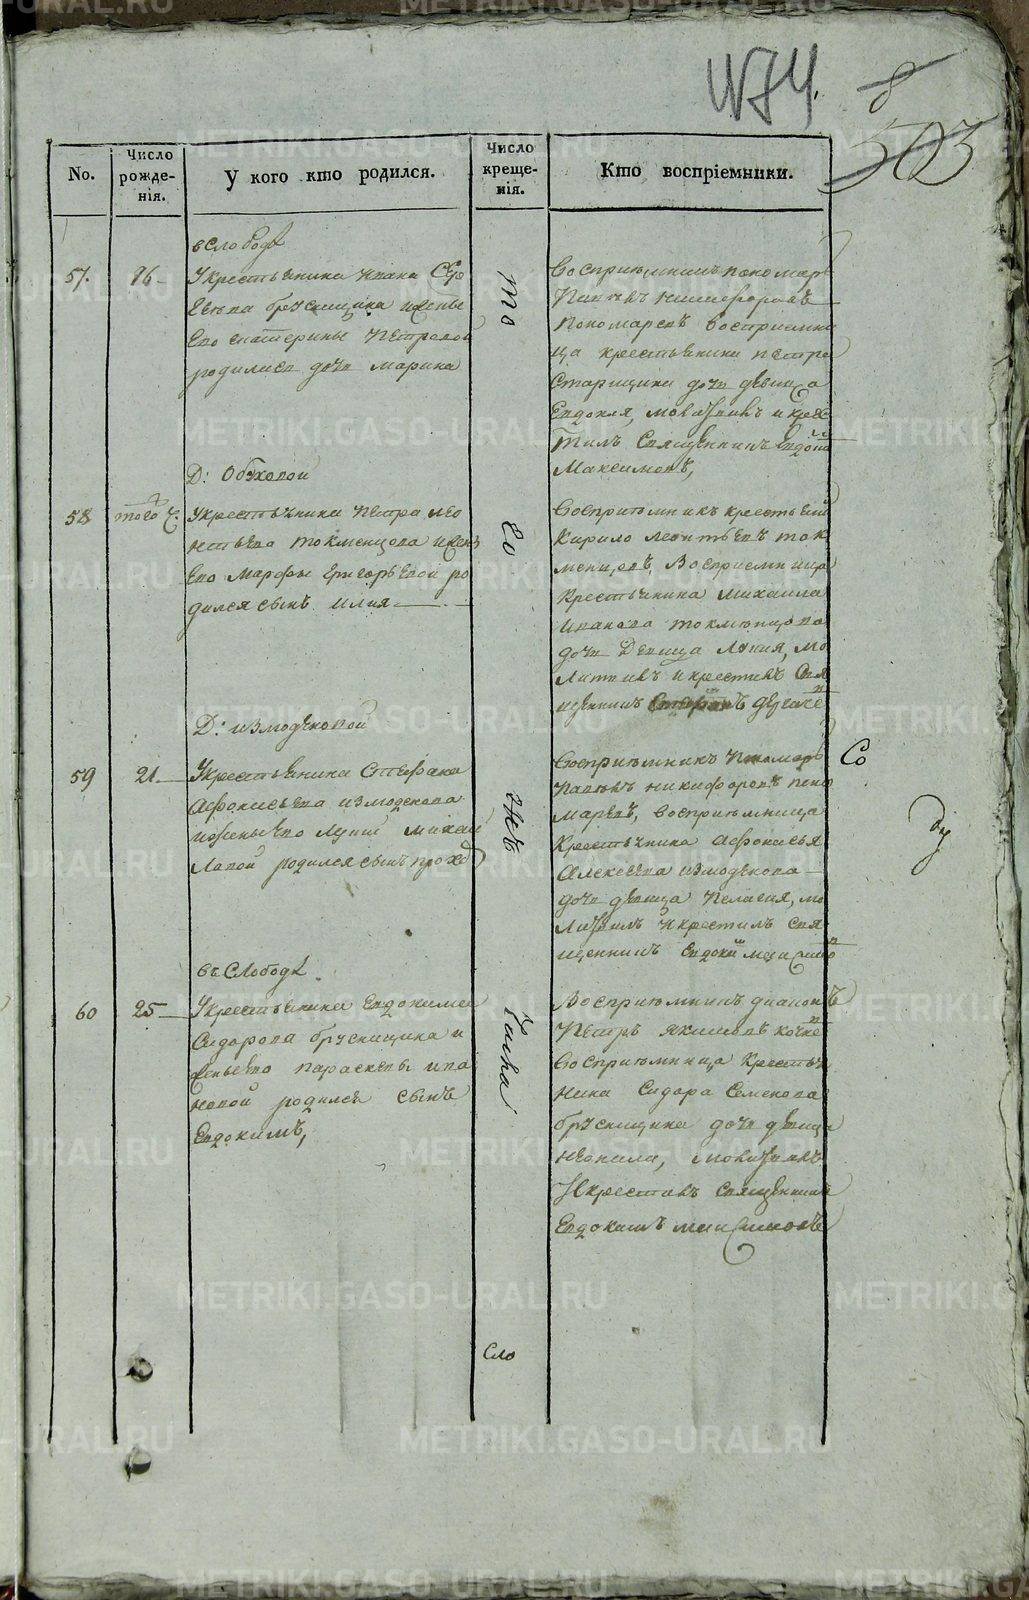 №74.
8
503
No.
Число рожде-нія.
У кого кто родился.
Число креще-нія.
Кто воспріемники.
вслободѣ
57.
16
Укрестьянина Ивана
брусницина ижены
его екатерины петровой
родилась дочь марина
то
Восприемникъ пономарь
Павелъ никифоровъ
пономаревъ восприемни
ца крестьянина петра
старицина дочь девица
Евдокия, моливтвилъ и крес
тилъ священникъ Евдоки
Максимовъ,
Д: Обуховой
58
того ч.
Укрестьянина петра лео
нтьева токменцова ижены
его марфы григорьевой ро
дился сынъ илия
го
Восприемникъ крестьянинъ
Кирило леонтьевъ ток
менцовъ, Восприемница
Крестьянина михаила
иванова токменцова
дочь девица
литвилъ и крестилъ свя
щенникъ Стефанъ
Д: измоденовой
59
21.
Укрестьянина Стефана
Афонасьева измоденова
иженыего михаи
ловой родился сынъ прохо
же
Восприемникъ пономарь
Павелъ никифоровъ поно
маревъ, восприемница
Крестьянина Афонасья
Алексеева измоденова
дочь девица пелагия, мо
литвилъ и крестилъ свя
щенникъ евдокий максимо
Со
въ слободѣ
60
25
Укрестьянина Евдокима
Сидорова брусницина и
женыего параскевы ива
новой родился сынъ
Евдокимъ,
числа
Восприемникъ диаконъ
Петръ якимовъ
восприемница крестья
нина Сидора Семенова
брусницина дочь девица
неонила, молитвилъ
Икрестилъ священникъ
Евдокимъ максимовъ
сло
METRIKI.GASO-URAL.RU